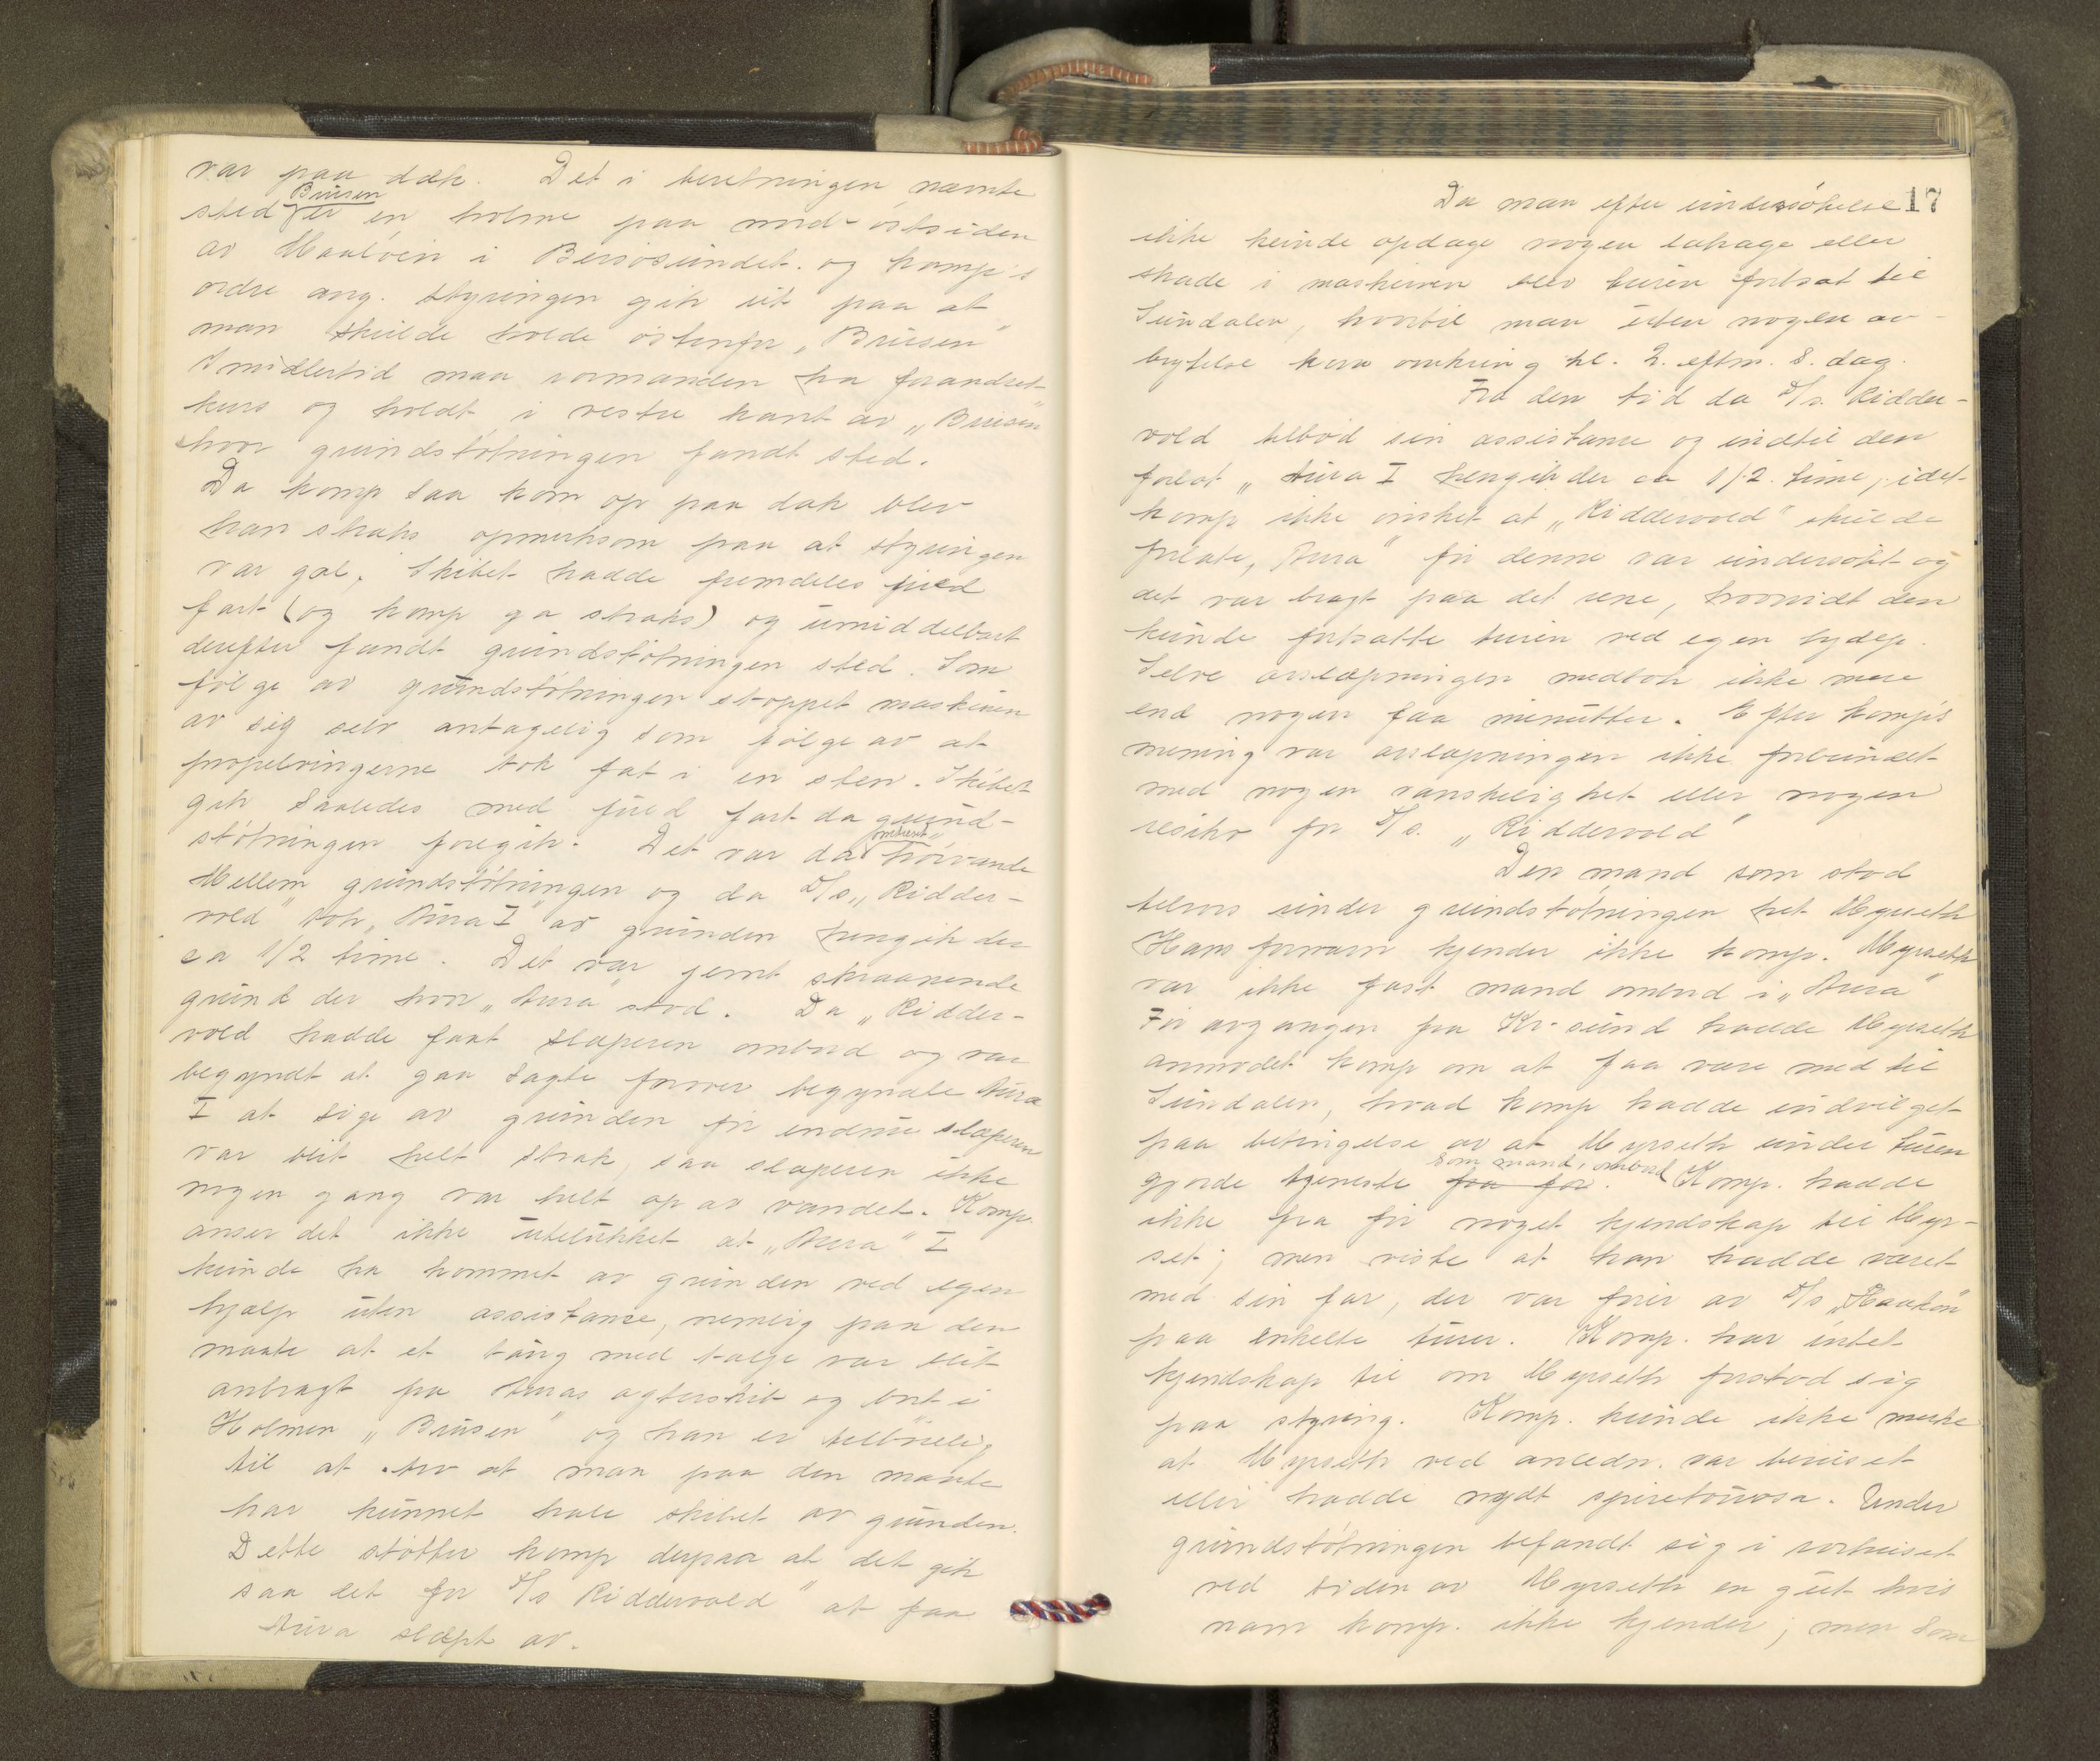 var paa dæk. Det i beretningen nævnte
sted Brusen er en holme paa nord-østsiden
av Maaløen i Bersøsundet. og komp's
ordre ang. styringen gik ut paa at
man skulde holde østenfor „Brusen"
Imidlertid maa vormanden ha forandret
kurs og holdt i vestre kant av „Brusen"
hvor grundstøtningen fandt sted.
Da komp saa kom op paa dæk blev
han straks opmerksom paa at styringen
var gal. Skibet hadde fremdeles fuld
fart (og komp ga straks) og umiddelbart
derefter fandt grundstøtningen sted. Som
følge av grundstøtningen stoppet maskinen
av sig selv antagelig som følge av at
propelvingerne tok fat i en sten. Skibet
gik saaledes med fuld fart da grund-
støtningen foregik. Det var da omtrent høivande
Mellem grundstøtningen og da D/S „Ridder-
vold" tok „Aura I" av grunden hengik der
ca 1/2 time. Det var jevnt skraanende
grund der hvor „Aura" stod. Da „Ridder-
vold hadde faat slæperen ombord og var
begyndt at gaa sagte forover begyndte Aura
I at sige av grunden før endnu slæperen
var blit helt strak, saa slæperen ikke
nogen gang var helt op av vandet. Komp.
anser det ikke utelukket at „Aura" I
kunde ha kommet av grunden ved egen
hjælp uten assistance, nemlig paa den
maate at et taug med talje var blit
anbragt fra Auras agterskib og bort i
Holmen „Brusen" og han er tilbøielig
til at tro at man paa den maate
har kunnet hale skibet av grunden.
Dette støtter komp derpaa at det gik
saa let for D/S Riddervold" at faa
Aura slæpt av.
17
Da man efter undersøkelse
ikke kunde opdage nogen lækage eller
skade i maskinen blev turen fortsat til
Sundalen, hvortil man uten nogen av-
brytelse kom omkring kl. 2. eftm. s. dag
Fra den tid da D/S. Ridder-
vold tilbød sin assistance og indtil den
forlot „Aura I hengik der ca 1/2. time, idet
komp ikke ønsket at „Riddervold" skulde
forlate, Aura" før denne var undersøkt og
det var bragt paa det rene, hvorvidt den
kunde fortsætte turen ved egen hjælp.
Selve avslæpningen medtok ikke mere
end nogen faa minutter. Efter komp's
mening var avslæpningen ikke forbundet
med nogen vanskelighet eller nogen
risiko for D/S. „Riddervold"
Den mand som stod
tilrors under grundstøtningen het Myrseth
Hans fornavn kjender ikke komp. Myrseth
var ikke fast mand ombord i „Aura"
Før avgangen fra Kr-sund hadde Myrseth
anmodet komp om at faa være med til
Sundalen, hvad komp hadde indvilget
paa betingelse av at Myrseth under turen
gjorde tjeneste fra før. som mand ombord Komp. hadde
ikke fra før noget kjendskap til Myr-
set; men viste at han hadde været
med sin far, der var fører av D/S „Haakon"
paa enkelte turer. Komp. har intet
kjendskap til om Myrseth forstod sig
paa styring. Komp. kunde ikke merke
at Myrseth ved anledn. var beruset
eller hadde nydt spirituosa. Under
grundstøtningen befandt sig i rorhuset
ved siden av Myrseth en gut hvis
navn komp. ikke kjender; men som